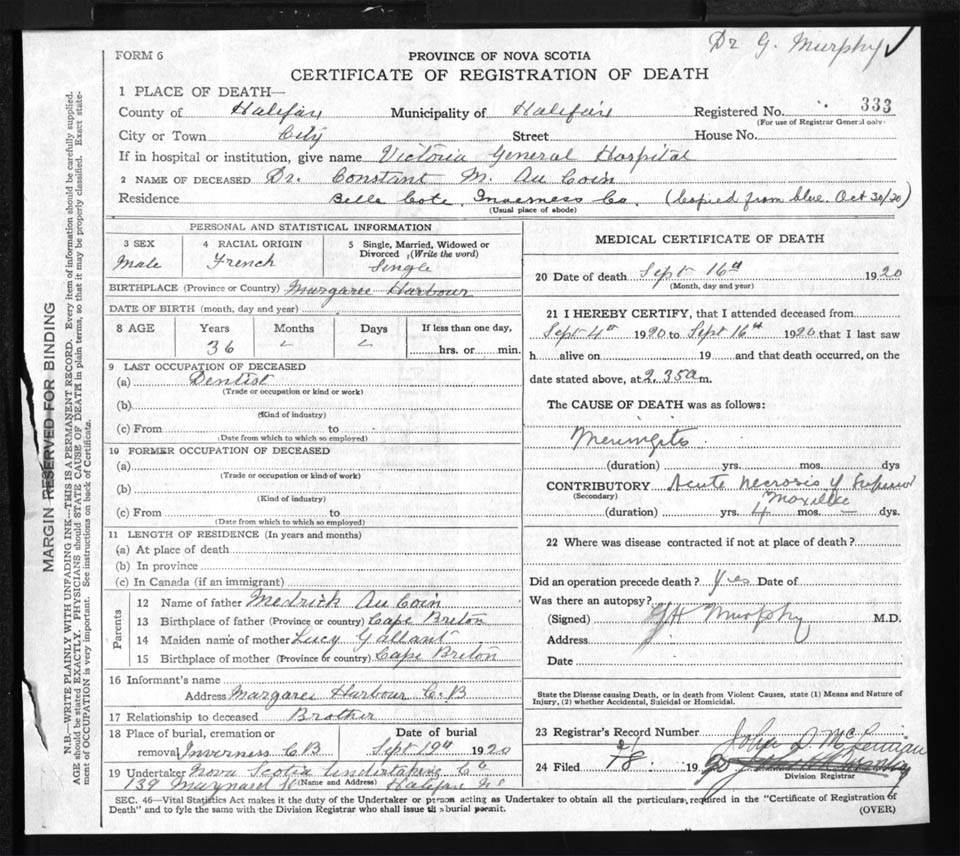 Dr G. Murphy ✓
FORM 6
PROVINCE OF NOVA SCOTIA
CERTIFICATE OF REGISTRATION OF DEATH
1 PLACE OF DEATH—
County of Halifax Municipality of Halifax Registered No. 333
(For use of Registrar General only)
City or Town City Street House No.
If in hospital or institution, give name Victoria General Hospital
2 NAME OF DECEASED Dr. Constant M. Au Coin
Residence Belle Cote, Inverness Co. (Copied from blue. Oct 30/20)
(Usual place of abode)
PERSONAL AND STATISTICAL INFORMATION
3 SEX 4 RACIAL ORIGIN 5 Single, Married, Widowed or
Divorced (Write the word)
Male French Single
BIRTHPLACE (Province or Country) Margaree Harbour
DATE OF BIRTH (month, day and year)
8 AGE Years Months Days If less than one day,
36 hrs. or min.
9 LAST OCCUPATION OF DECEASED
(a) Dentist
(Trade or occupation or kind or work)
(b)
(Kind of industry)
(c) From to
(Date from which to which so employed)
10 FORMER OCCUPATION OF DECEASED
(a)
(Trade or occupation or kind of work)
(b)
(Kind of industry)
(c) From to
(Date from which to which so employed)
11 LENGTH OF RESIDENCE (In years and months)
(a) At place of death
(b) In province
(c) In Canada (if an immigrant)
Parents
12 Name of father Medrick Au Coin
13 Birthplace of father (Province or country) Cape Breton
14 Maiden name of mother Lucy Gallant
15 Birthplace of mother (Province or country) Cape Breton
16 Informant's name
Address Margaree Harbour C. B
17 Relationship to deceased Brother
18 Place of burial, cremation or Date of burial
removal Inverness C B Sept 19th 1920
19 Undertaker Nova Scotia Undertaking Co
(Name and Address)
139 Maynard St Halifax NS
MEDICAL CERTIFICATE OF DEATH
20 Date of death Sept 16th 1920
(Month, day and year)
21 I HEREBY CERTIFY, that I attended deceased from
Sept 4th 1920 to Sept 16th 1920 that I last saw
h alive on 19 and that death occurred, on the
date stated above, at 2.35a m.
The CAUSE OF DEATH was as follows:
Meningitis
(duration) yrs. mos. dys
CONTRIBUTORY Acute necrosis of Superior
(Secondary) Maxillae
(duration) yrs. 4 mos. — dys.
22 Where was disease contracted if not at place of death?
Did an operation precede death? Yes Date of
Was there an autopsy?
(Signed) G H Murphy M.D.
Address
Date
State the Disease causing Death, or in death from Violent Causes, state (1) Means and Nature of
Injury, (2) whether Accidental, Suicidal or Homicidal.
23 Registrar's Record Number
John D. McLennan
24 Filed 19 20
Division Registrar
SEC. 46—Vital Statistics Act makes it the duty of the Undertaker or person acting as Undertaker to obtain all the particulars required in the "Certificate of Registration of
Death" and to fyle the same with the Division Registrar who shall issue the burial permit. (OVER)
MARGIN RESERVED FOR BINDING
N.B.—WRITE PLAINLY WITH UNFADING INK—THIS IS A PERMANENT RECORD. Every item of information should be carefully supplied.
AGE should be stated EXACTLY. PHYSICIANS should STATE CAUSE OF DEATH in plain terms, so that it may be properly classified. Exact state-
ment of OCCUPATION is very important. See instructions on back of Certificate.